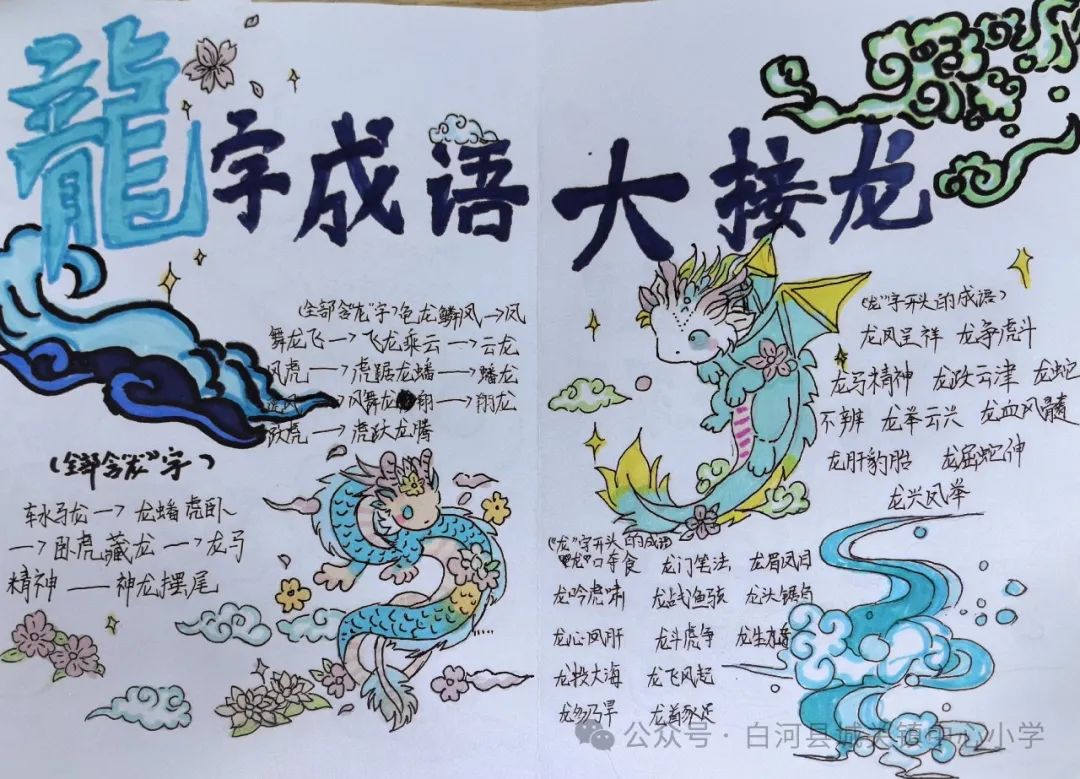 龍字成语大接龙
(全部含"龙"字)龟龙鳞凤→凤
舞龙飞→飞龙乘云→云龙
风虎→虎踞龙蟠→蟠龙
→凤舞龙翔→翔龙
跃虎→虎跃龙腾
(全部含"龙"字)
车水马龙→龙蟠虎卧
→卧虎藏龙→龙马
精神——神龙摆尾
("龙"字开头的成语)
龙凤呈祥 龙争虎斗
龙马精神 龙跃云津 龙蛇
不辨 龙举云兴 龙血凤髓
龙肝豹胎 龙屈蛇伸
龙兴凤举
("龙"字开头的成语)
龙口夺食 龙门笔法 龙眉凤目
龙吟虎啸 龙战鱼骇 龙头锯角
龙心凤肝 龙斗虎争 龙生九子
龙投大海 龙飞凤起
龙多乃旱 龙首豕足
公众号·白河县城关镇中心小学